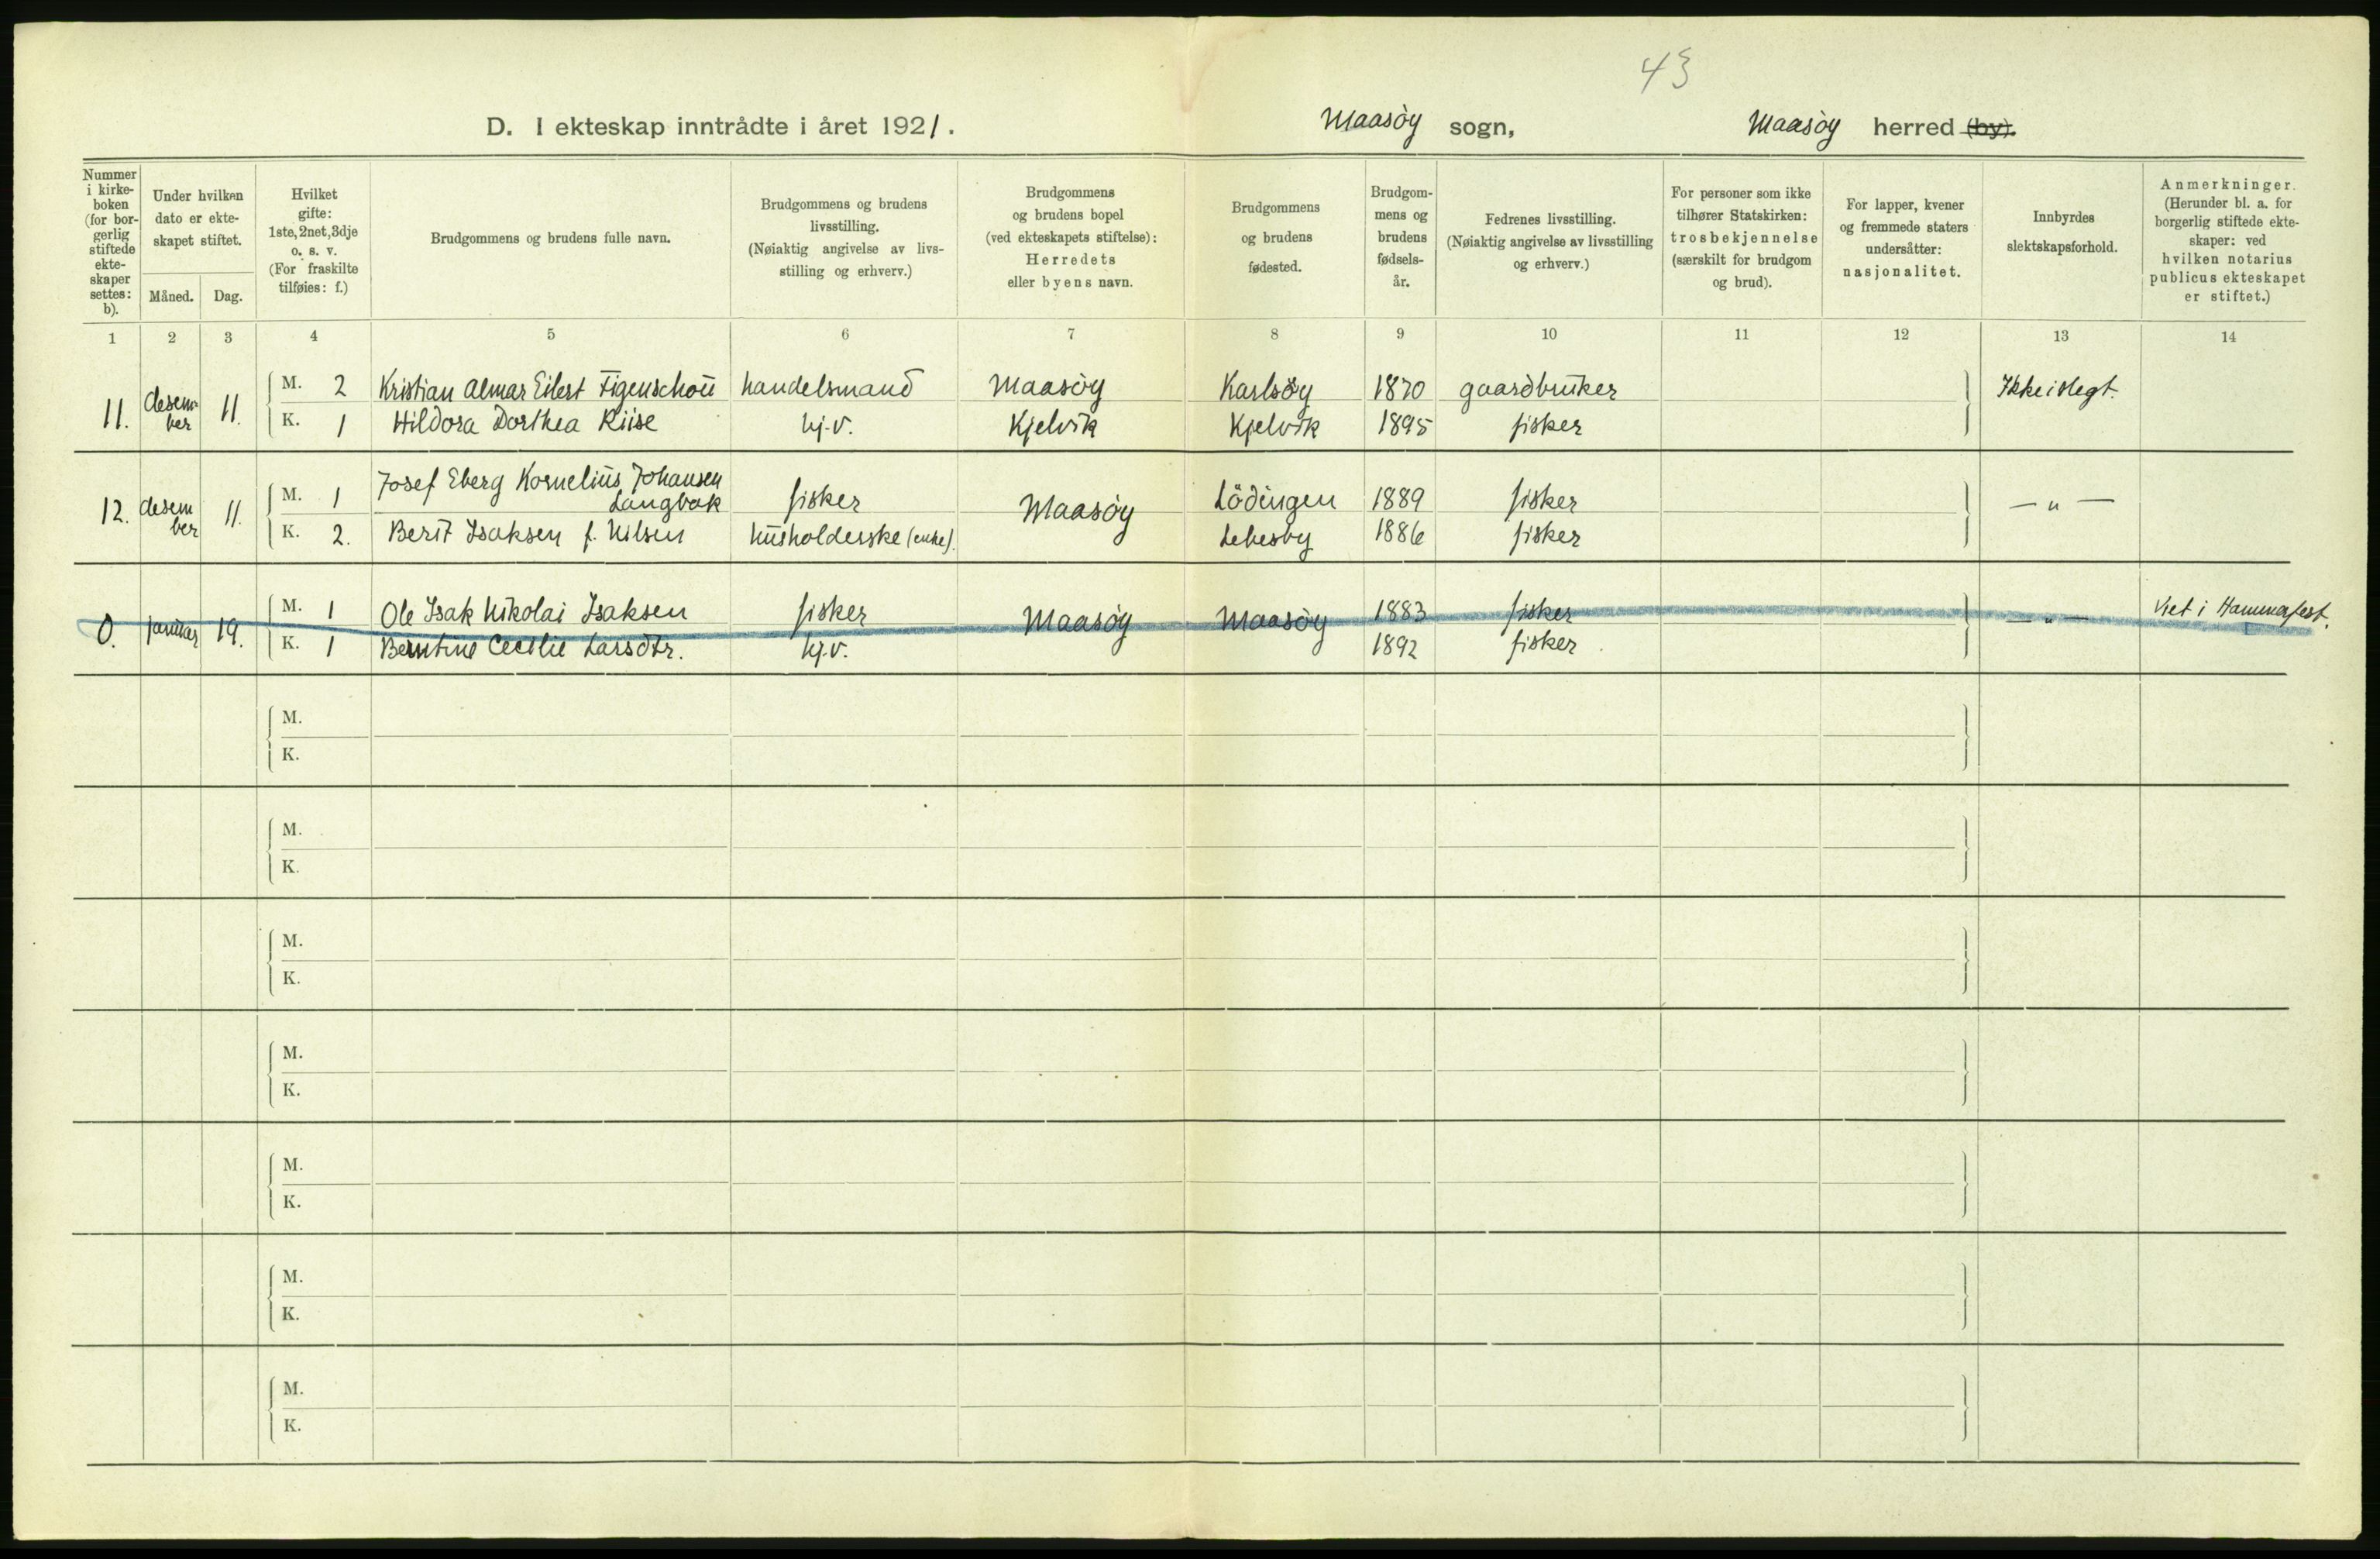 43
D. I ekteskap inntrådte i året 1921. Maasöy sogn, Maasöy herred (by).
Nummer i kirke-boken (for bor-gerlig stiftede ekte-skaper settes: b).
Under hvilken dato er ekte-skapet stiftet.
Måned. Dag.
Hvilket gifte: 1ste, 2net, 3dje o. s. v. (For fraskilte tilføies: f.)
Brudgommens og brudens fulle navn.
Brudgommens og brudens livsstilling. (Nøiaktig angivelse av livs-stilling og erhverv.)
Brudgommens og brudens bopel (ved ekteskapets stiftelse): Herredets eller byens navn.
Brudgommens og brudens fødested.
Brudgom-mens og brudens fødsels-år.
Fedrenes livsstilling. (Nøiaktig angivelse av livsstilling og erhverv.)
For personer som ikke tilhører Statskirken: trosbekjennelse (særskilt for brudgom og brud).
For lapper, kvener og fremmede staters undersåtter: nasjonalitet.
Innbyrdes slektskapsforhold.
Anmerkninger. (Herunder bl. a. for borgerlig stiftede ekte-skaper: ved hvilken notarius publicus ekteskapet er stiftet.)
1 2 3 4 5 6 7 8 9 10 11 12 13 14
11. desem-ber 11.
M. 2 Kristian Almar Eilert Figenschou handelsmand Maasöy Karlsöy 1870 gaardbruker Ikke i slegt.
K. 1 Hildora Dorthea Riise hj.v. Kjelvik Kjelvik 1895 fisker
12. desem ber 11.
M. 1 Josef Eberg Kornelius Johansen Langbak fisker Maasöy Lödingen 1889 fisker — " —
K. 2. Berit Isaksen f. Nilsen husholderske (enke). Lebesby 1886 fisker
0. januar 19.
M. 1 Ole Isak Nikolai Isaksen fisker Maasöy Maasöy 1883 fisker — " — Viet i Hammerfest.
K. 1 Berntine Cecilie Larsdtr. hj.v. 1892 fisker
M.
K.
M.
K.
M.
K.
M.
K.
M.
K.
M.
K.
M.
K.